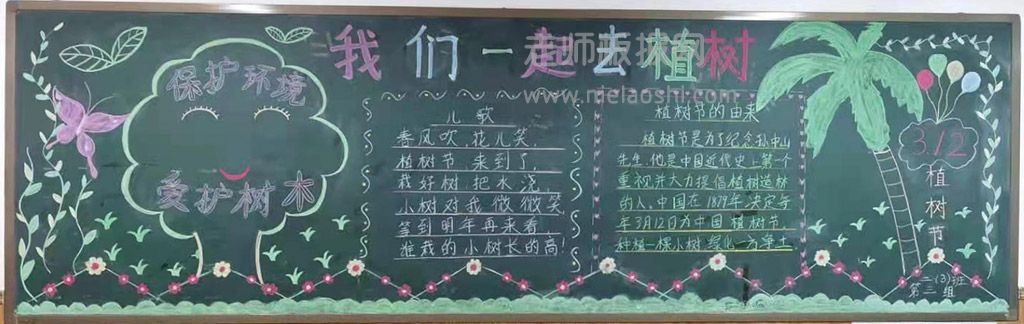 我们一起去植树
老师板报网
www.melaoshi.com
保护环境
爱护树木
儿歌
春风吹,花儿笑,
植树节 来到了,
栽好树 把水浇,
小树对我 微微笑
等到明年再来看,
谁栽的小树长的高!
植树节的由来
植树节是为了纪念孙中山
先生,他是中国近代史上第一个
重视并大力提倡植树造林
的人,中国在1979年决定每
年3月12日为中国植树节,
种植一棵小树 绿化一方净土
3/2
植树节
二(3)班
第三组